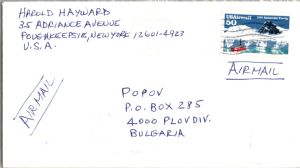 HAROLD HAYWARD
35 ADRIANCE AVENUE
POUGHKEEPSIE, NEW YORK 12601-4923
U.S.A.
USAirmail
50
AIRMAIL
AIRMAIL
POPOV
P.O. BOX 285
4000 PLOVDIV.
BULGARIA